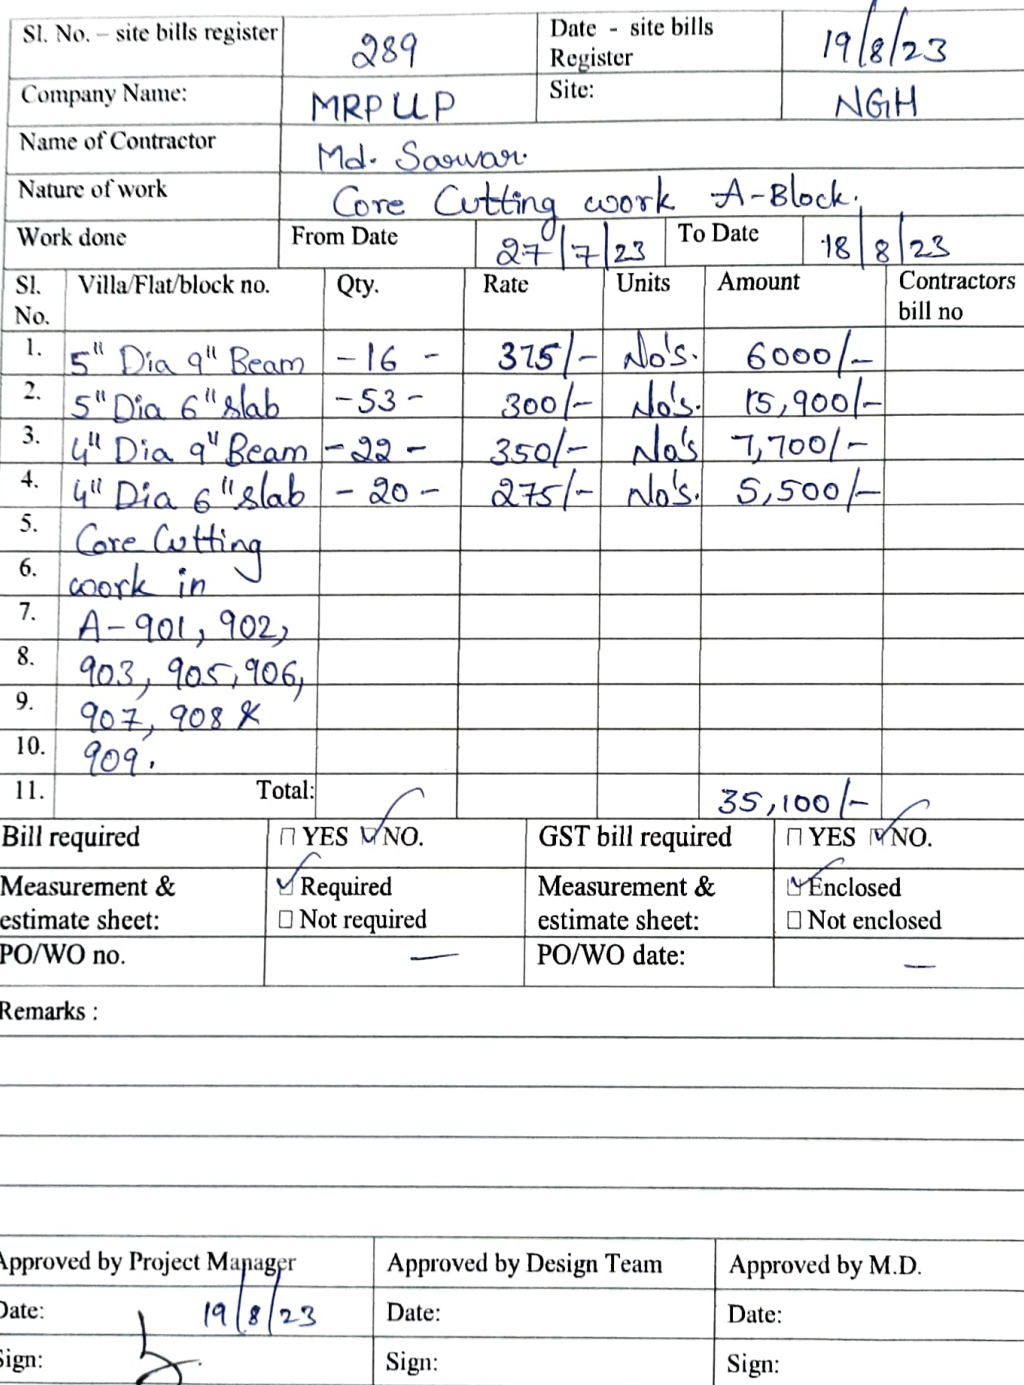 Sl. No. – site bills register 289 Date - site bills Register 19/8/23
Company Name: MRPLLP Site: NGH
Name of Contractor Md. Sarwar.
Nature of work Core Cutting work A-Block.
Work done From Date 27/7/23 To Date 18/8/23
Sl. No. Villa/Flat/block no. Qty. Rate Units Amount Contractors bill no
1. 5" Dia 9" Beam -16 - 375/- No's. 6000/-
2. 5" Dia 6" slab -53- 300/- No's. 15,900/-
3. 4" Dia 9" Beam -22- 350/- No's 7,700/-
4. 4" Dia 6" slab -20- 275/- No's. 5,500/-
5. Core Cutting
6. work in
7. A-901, 902,
8. 903, 905, 906,
9. 907, 908 &
10. 909.
11. Total: 35,100/-
Bill required YES NO. GST bill required YES NO.
Measurement & estimate sheet: Required Not required Measurement & estimate sheet: Enclosed Not enclosed
PO/WO no. — PO/WO date: —
Remarks :
Approved by Project Manager Approved by Design Team Approved by M.D.
Date: 19/8/23 Date: Date:
Sign: Sign: Sign: